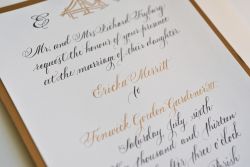 E
Mr. and Mrs. Richard
request the honour of your presence
at the marriage of their daughter
Ericka Merritt
to
Fenwick Gordon Gardiner III
Saturday, July sixth
thousand and thirteen
three o'clock